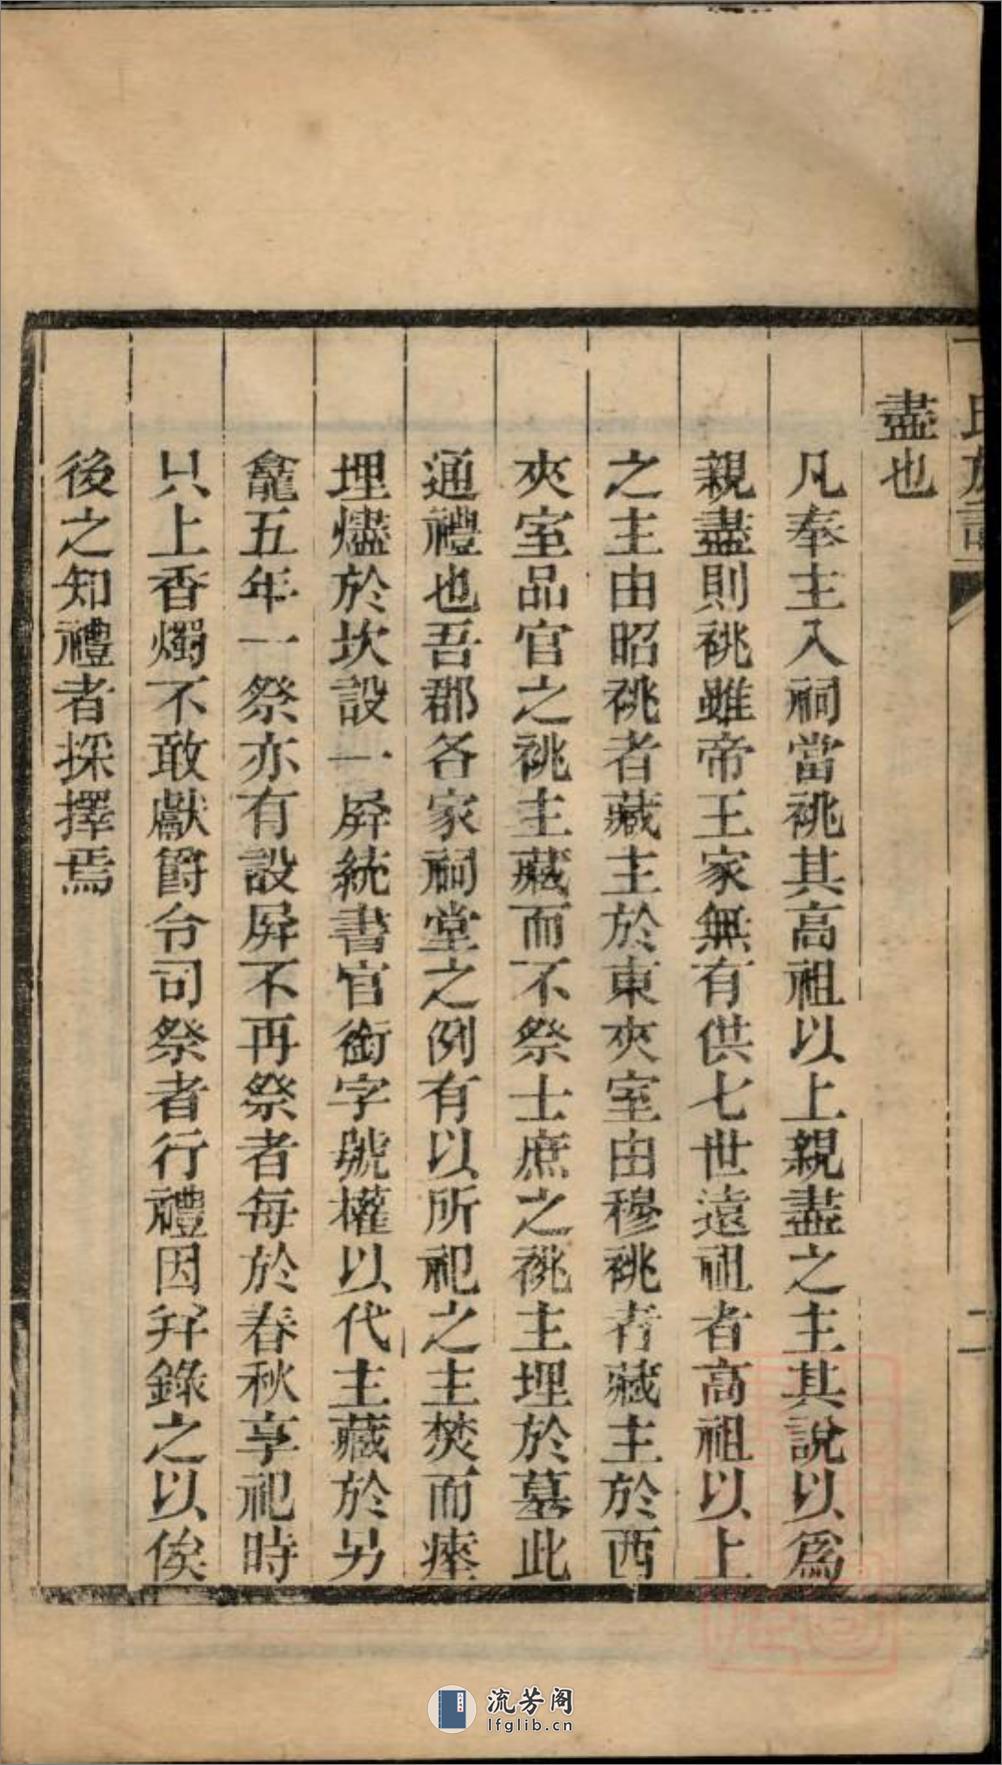 氏族譜
二
盡也
凡奉主入祠當祧其高祖以上親盡之主其說以為
親盡則祧雖帝王家無有供七世遠祖者高祖以上
之主由昭祧者藏主於東夾室由穆祧者藏主於西
夾室品官之祧主藏而不祭士庶之祧主埋於墓此
通禮也吾郡各家祠堂之例有以所祀之主焚而瘞
埋燼於坎設一屏統書官銜字號權以代主藏於另
龕五年一祭亦有設屏不再祭者每於春秋享祀時
只上香燭不敢獻爵令司祭者行禮因弁錄之以俟
後之知禮者採擇焉
流芳阁
lfglib.cn